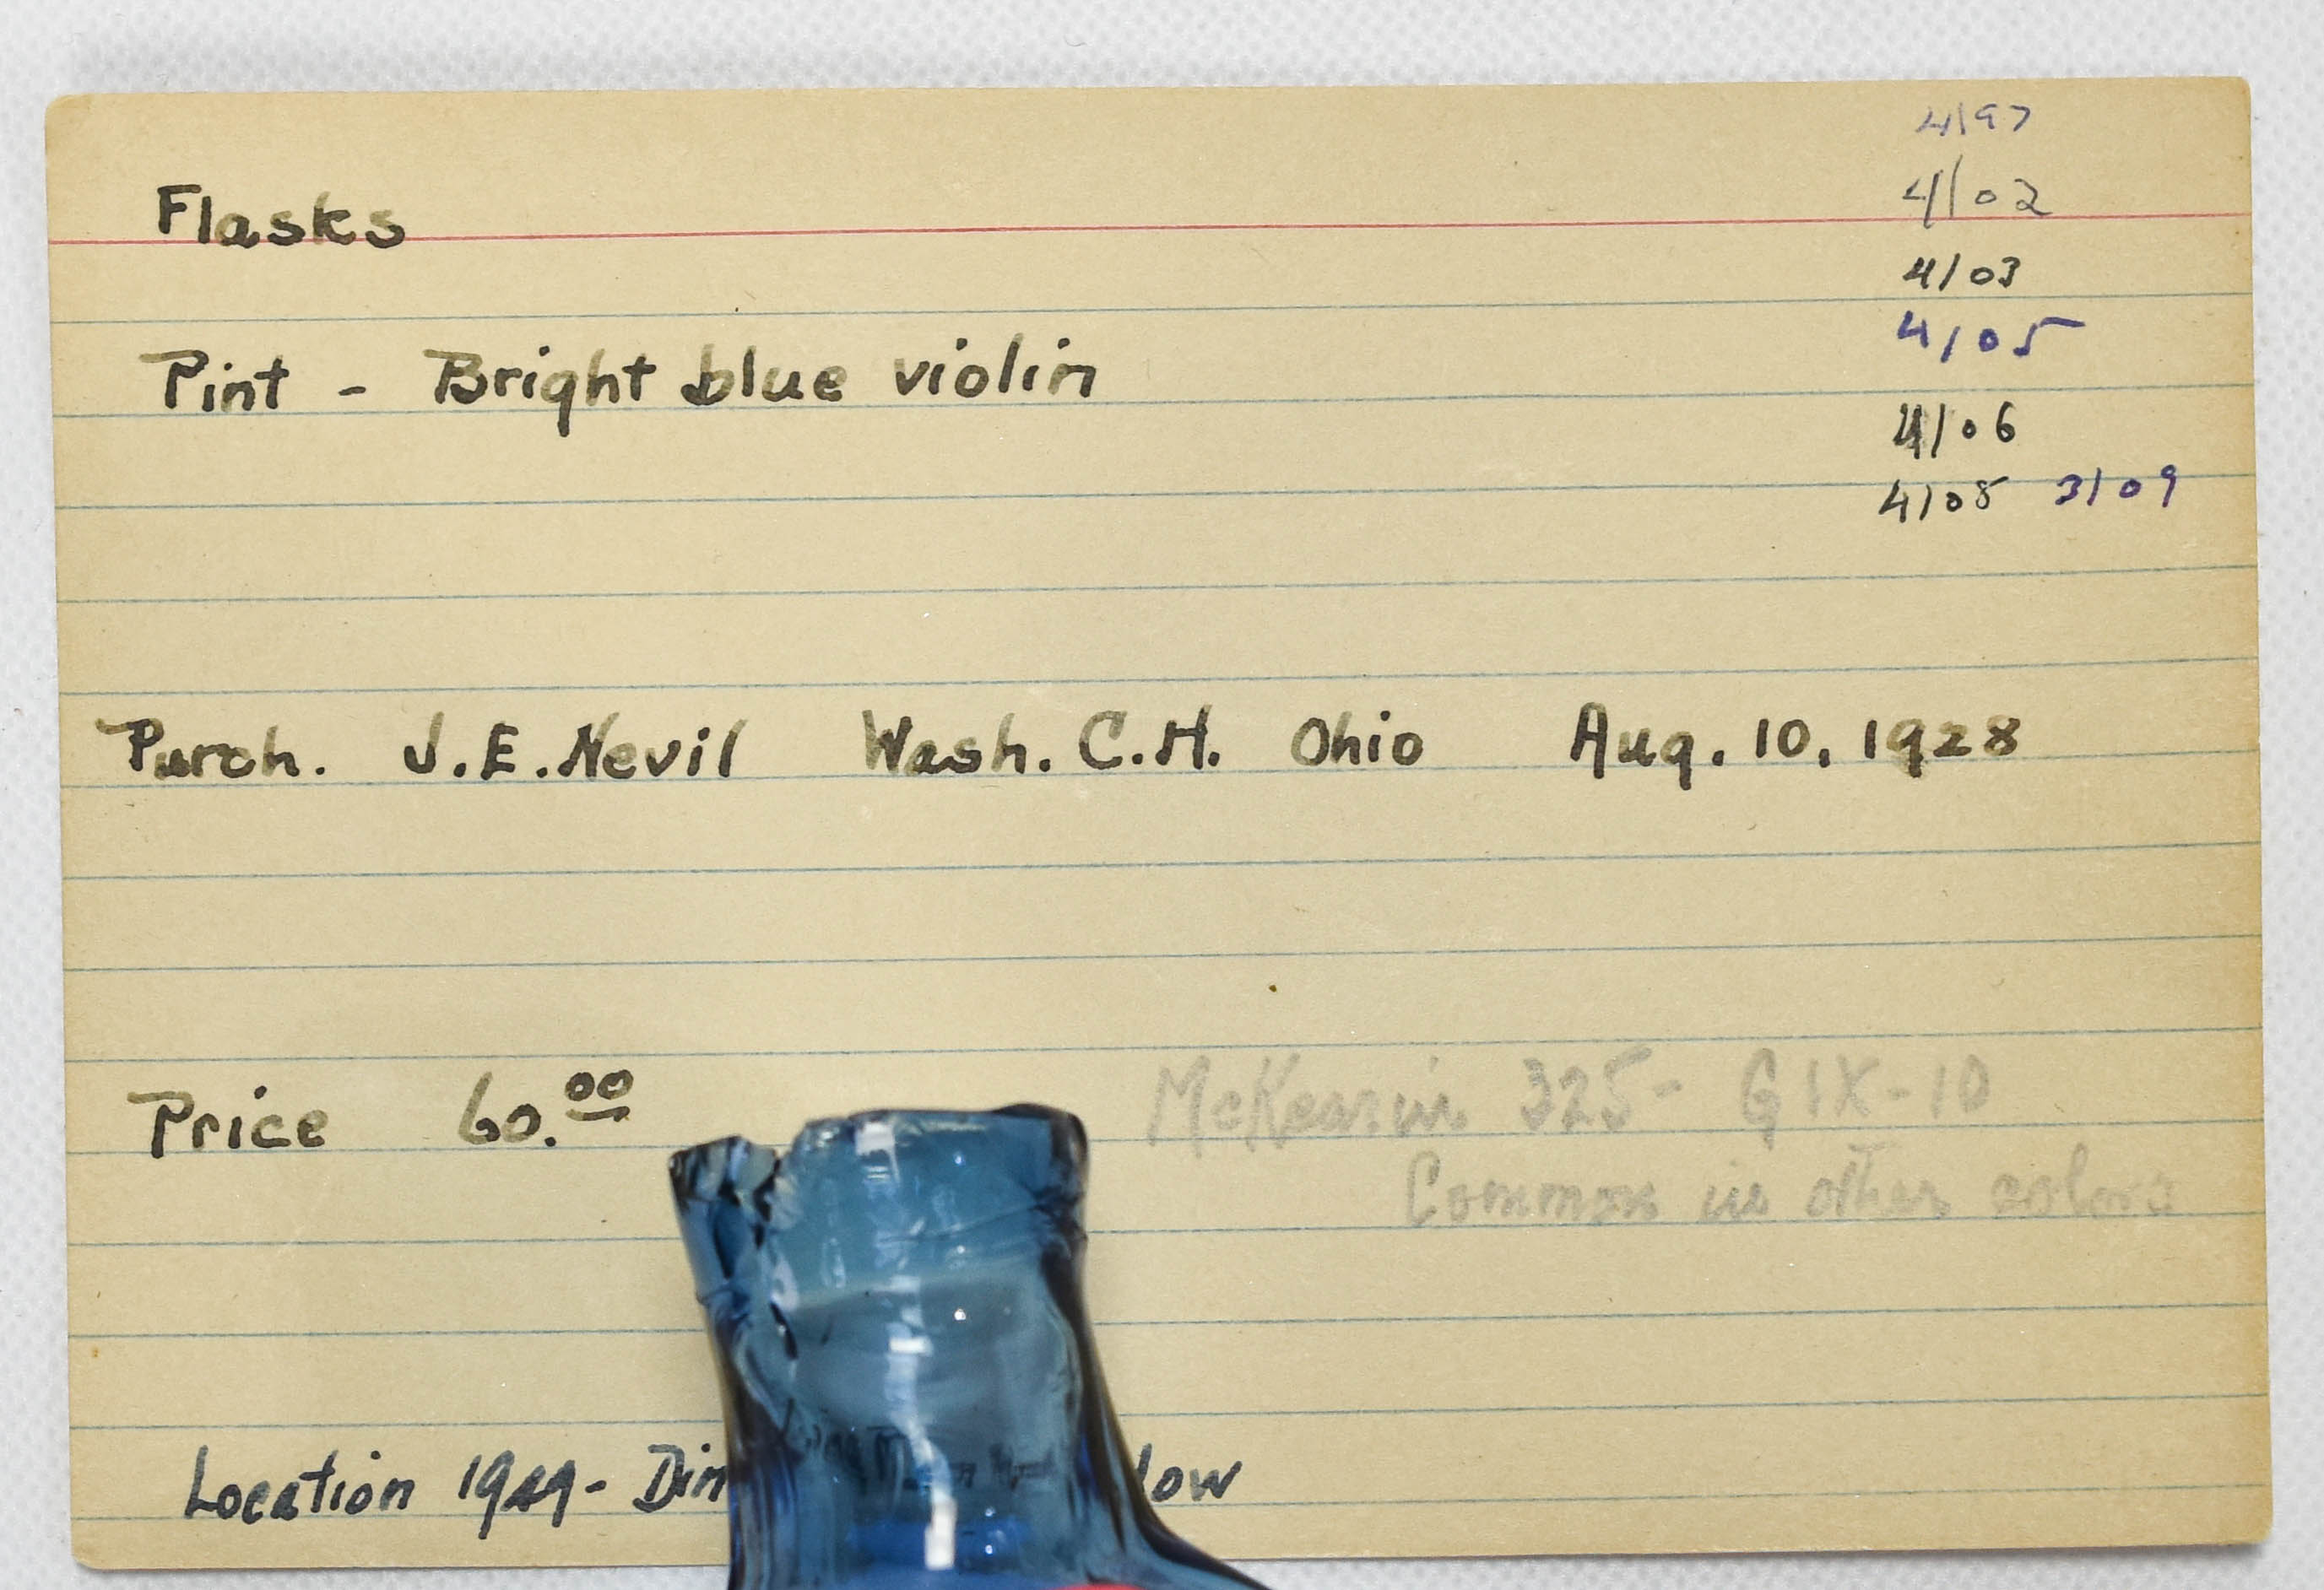 4/97
4/02
Flasks
4/03
4/05
Pint - Bright blue violin
4/06
4/08 3/09
Purch. J.E. Nevil Wash. C.H. Ohio Aug. 10, 1928
Price 60.00
McKearin 325- GIX-10
Common in other colors
Location 1949- Din